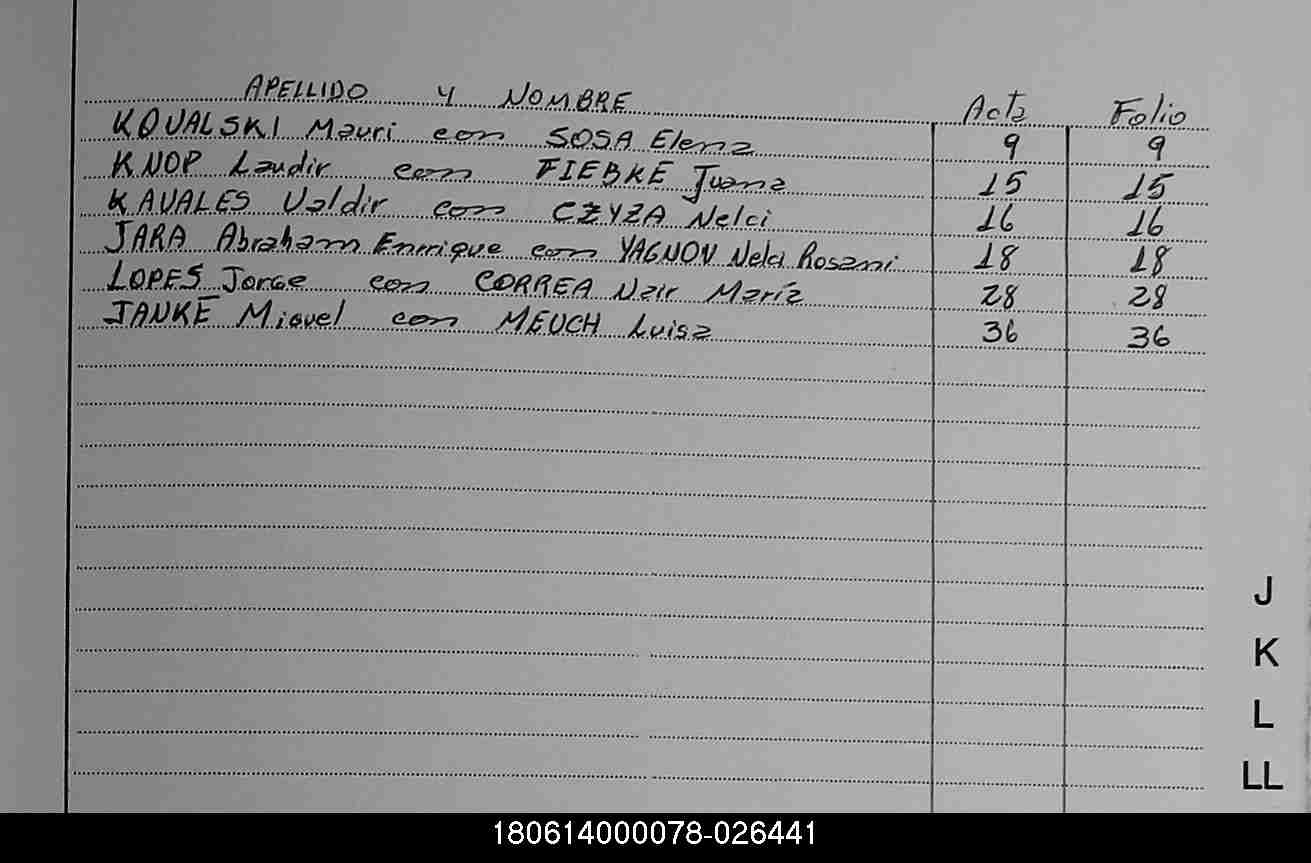 APELLIDO Y NOMBRE Acta Folio
KOVALSKI Mauri con SOSA Elena 9 9
KNOP Laudir con FIEBKE Juana 15 15
KAVALES Valdir con CZYZA Nelci 16 16
JARA Abraham Enrrique con YAGNON Nelci Rosani 18 18
LOPES Jorge con CORREA Nair María 28 28
JANKE Miguel con MEUCH Luisa 36 36
J
K
L
LL
180614000078-026441